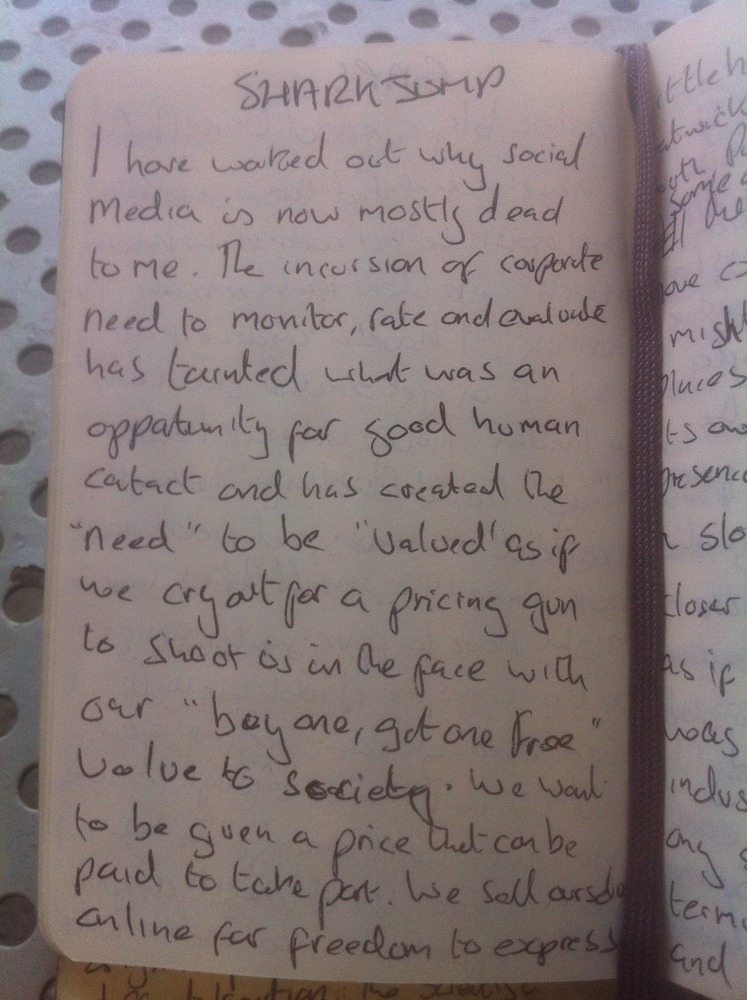 SHARK JUMP
I have worked out why social
media is now mostly dead
to me. The incursion of corporate
need to monitor, rate and evaluate
has tainted what was an
oppatunity for good human
catact and has created the
"need" to be "valued" as if
we cry out for a pricing gun
to shoot us in the face with
our "buy one, get one free"
value to society. We want
to be given a price that can be
paid to take part. We sell ourselves
online for freedom to express
might
places
its
presence
slo
closer
as if
was
indus
any
termi
and